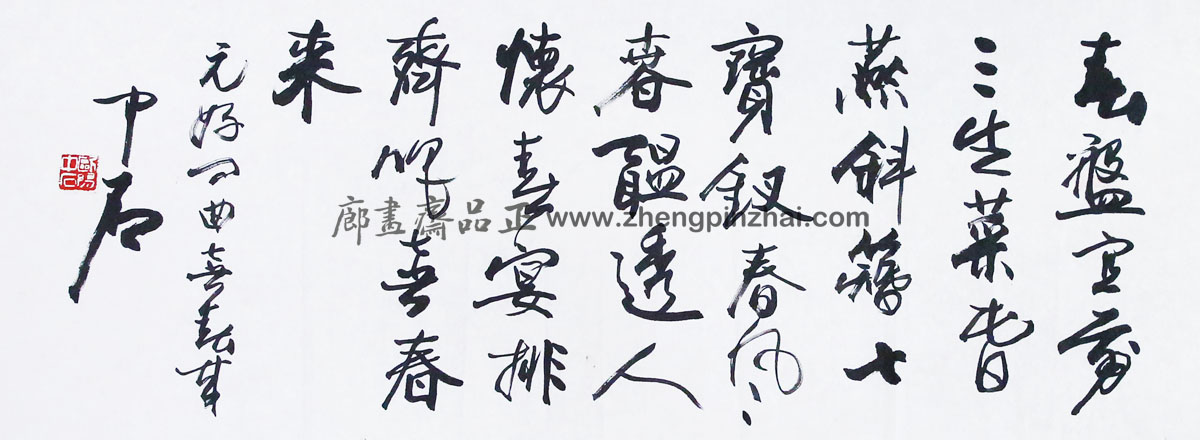 春盤宜剪
三生菜春
燕斜簪七
寶釵春風
春醖透人
懷春宴排
齊唱喜春
来
元好问曲喜春来
中石
歐陽中石
正品齋畫廊 www.zhengpinzhai.com